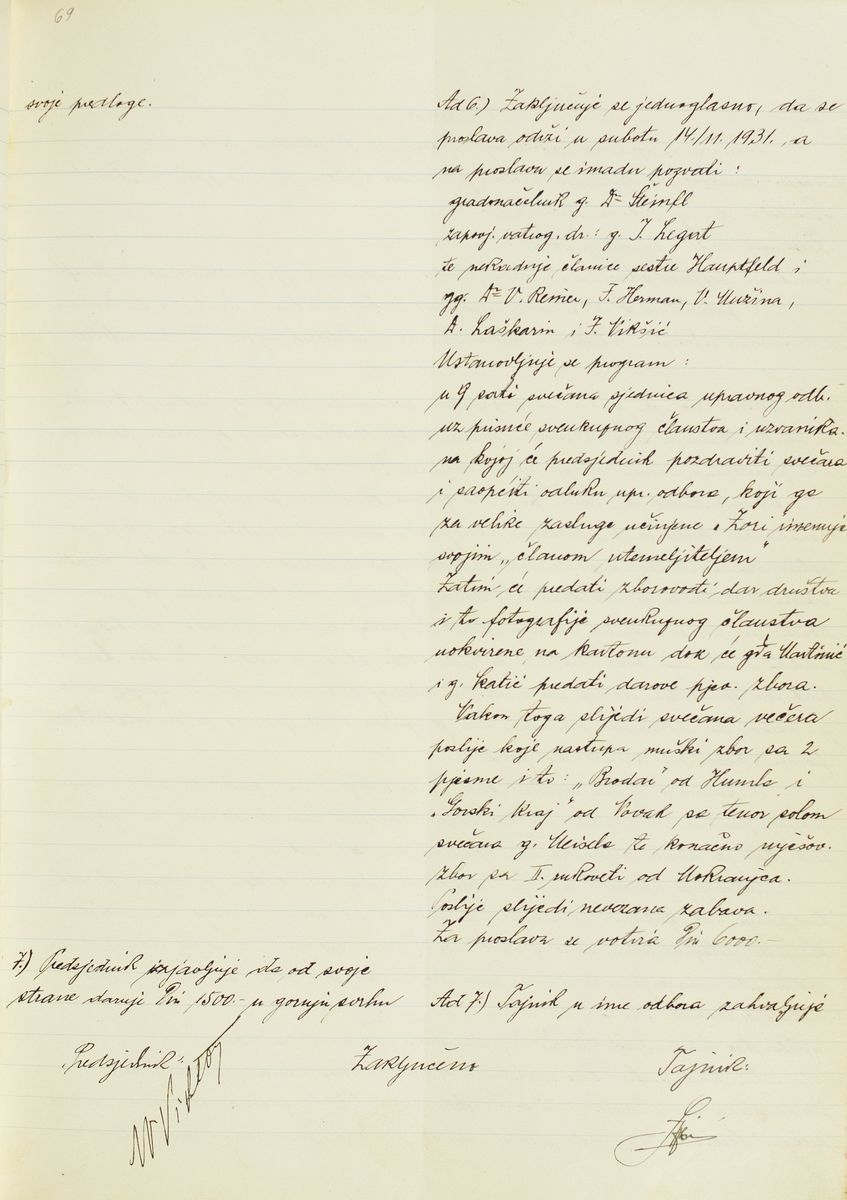 69
svoje predloge.
Ad 6.) Zaključuje se jednoglasno, da se
proslava održi u subotu 14./11. 1931., a
na proslavu se imadu pozvati :
gradonačelnik g. Dr Šteinfl
zapovj. vatrog. dr. : g. J. Legat
te nekadnje članice sestre Hauptfeld i
gg. Dr V. Reiner, F. Herman, V. Mužina,
D. Laškarin i F. Vikšić
Ustanovljuje se program :
u 9 sati svečana sjednica upravnog odb.
uz prisuće sveukupnog članstva i uzvanika.
na kojoj će predsjednik pozdraviti svečara
i saopćiti odluku upr. odbora, koji ga
za velike zasluge učinjene „Zori" imenuje
svojim „članom utemeljiteljem"
Zatim će predati zborovođi dar društva
i to fotografije sveukupnog članstva
uokvirene na kartonu dok će gđa Martinić
i g. Katić predati darove pjev. zbora.
Nakon toga slijedi svečana večera
poslije koje nastupa muški zbor sa 2
pjesme i to : „Brodar" od Humla i
„Gorski Kraj" od Novak sa tenor solom
svečara g. Meisela te konačno mješov.
zbor sa II. rukoveti od Mokranjca.
Poslije slijedi nevezana zabava.
Za proslavu se votira Din 6000.-
7.) Predsjednik izjavljuje da od svoje
strane daruje Din 1500.- u gornju svrhu
Ad 7.) Tajnik u ime odbora zahvaljuje
Predsjednik:
Zaključeno
Tajnik: